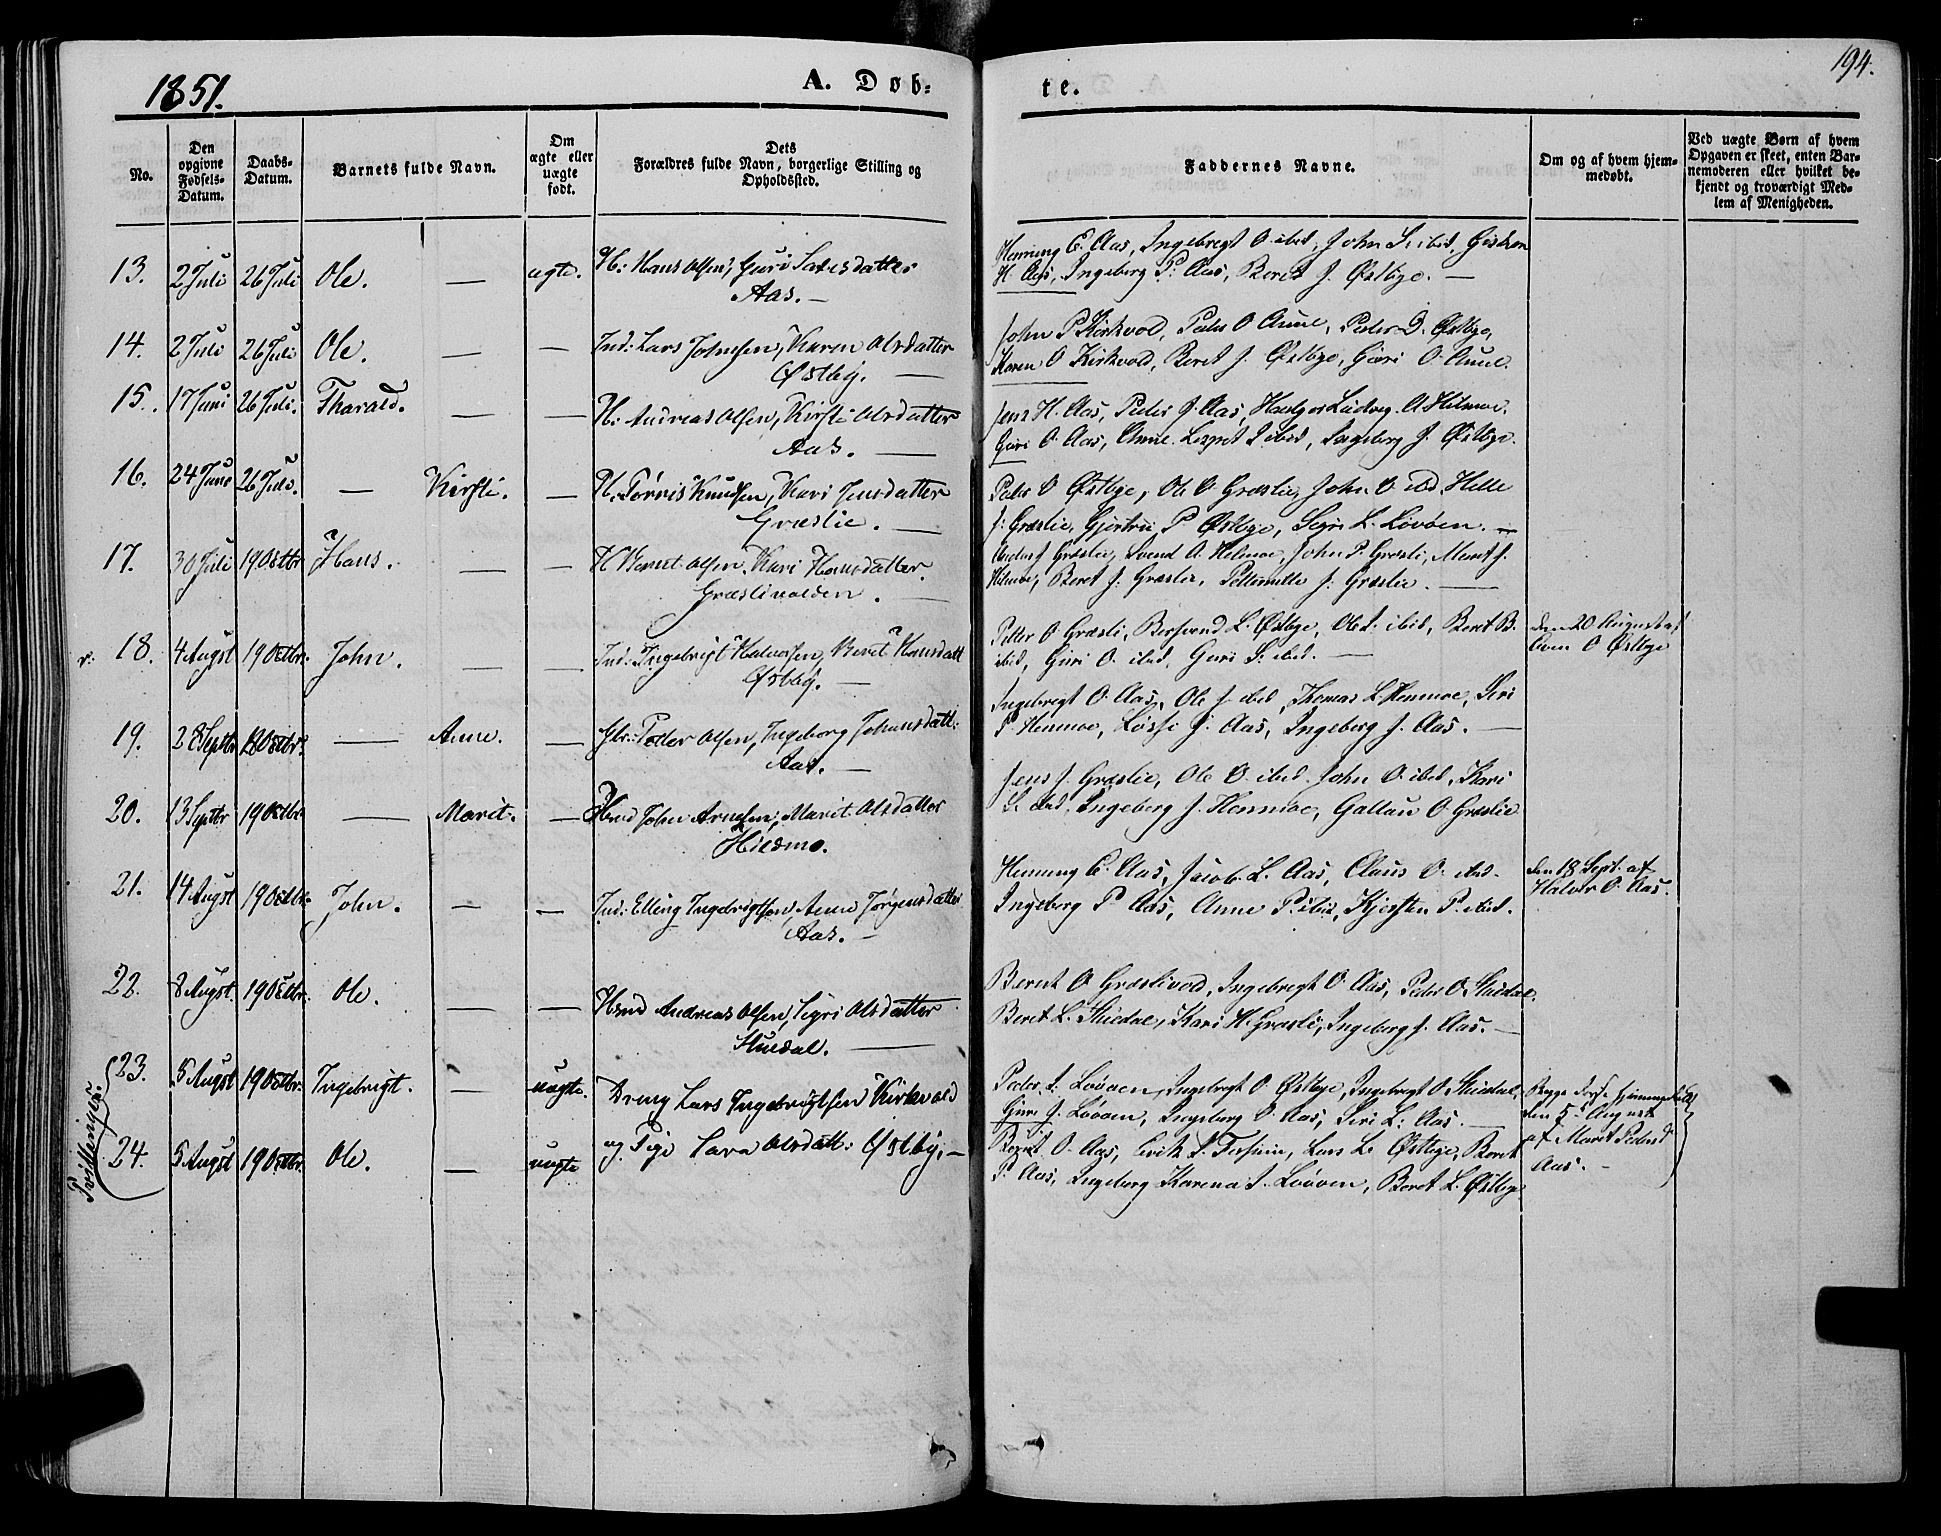 1851.
A. Døb-
te.
194.
No.
Den opgivne Fødsels-Datum.
Daabs-Datum.
Barnets fulde Navn.
Om ægte eller uægte født.
Dets Forældres fulde Navn, borgerlige Stilling og Opholdssted.
Faddernes Navne.
Om og af hvem hjem-medøbt.
Ved uægte Børn af hvem Opgaven er skeet, enten Bar-nemoderen eller hvilket be-kjendt og troværdigt Med-lem af Menigheden.
13. 2 Juli 26 Juli Ole. — ægte. H: Hans Olsen, Guri Larsdatter
Aas. —
Henning E. Aas, Ingebregt O. ibid, John S. ibid,
H. Aas, Ingeberg P. Aas, Beret J. Østbye. —
14. 2 Juli 26 Juli Ole. — — Ind: Lars Johnsen, Karen Olsdatter
Østby. —
John P Kirkvold, Peder O Aune, Peder D. Østbye,
Karen O Kirkvold, Beret J. Østbye, Guri O. Aune.
15. 17 Juni 26 Juli. Tharald. — — H: Andreas Olsen, Kirsti Olsdatter
Aas. —
Jens H. Aas, Peder J. Aas, Ludvig A Hilmoe.
Guri O. Aas, Anne ibid, Ingeberg J. Østbye.
16. 24 Juni 26 Juli. — Kirsti. — H. Tørris Knudsen, Kari Jensdatter
Græslie. —
Peder O Østbye, Ole O Græslie, John O. ibd, Helle
J: Græslie, Gjertru P Østbye, Segri L. Løvøen. —
17. 30 Juli 19 Octbr. Hans. — — H Bernt Olsen, Kari Hansdatter.
Græslivolden. —
J Græslie, Svend A. Helmoe, John P. Græsli, Meret J.
Hilmoe, Beret J: Græslie, Petternille J: Græslie. —
18. 4 Augst 19 Octbr. John. — — Ind: Ingebrigt Halvorsen, Beret Hansdatt
Østby. —
Petter O Græsli, Bersvend L. Østbye, Ole L. ibid, Beret B.
ibid, Guri O. ibid, Guri S. ibid. —
den 20 August af
Even O Østbye
19. 28 Septbr 19 Octbr. — Anne. — Peder Olsen, Ingeborg Johnsdatt:
Aas. —
Ingebregt O. Aas, Ole J ibid, Thomas L. Henmoe, Siri
P Henmoe, J: Aas, Ingeberg J. Aas. —
20. 13 Septbr 19 Octbr. — Marit. — Hmd John Arnesen, Marit Olsdatter
Hilsmo.
Jens J. Græslie, Ole O. ibid. John O. ibid, Kari
S. ibid, Ingeberg J. Henmoe, O Græslie
21. 14 Augst 19 Octbr. John. — — Ind: Elling Ingebrigtsen, Anne Jørgensdatter
Aas. —
Henning E. Aas, Jacob L. Aas, Claus O. ibid.
Ingeberg P Aas, Anne P. ibid, Kjersten P. ibid.
den 18 Sept. af
Halvor O. Aas.
22. 8 Augst. 19 Octbr. Ole. — — Hmd Andreas Olsen, Sigri Olsdatter
Stuedal. —
Bernt O Græslivold, Ingebregt O. Aas, Peder O. Stuedal.
Beret L. Stuedal, Kari H. Græsli, Ingeberg J. Aas. —
Tvillinger
23. 5 Augst 19 Octbr. Ingebrigt. — uægte. Dreng Lars Ingebrigtsen Kirkvold
Peder L: Løvøen, Ingebregt O. Østbye, Ingebregt O. Stuedal,
Guri J. Løvøen, Ingeberg O. Aas, Siri L: Aas. —
Begge disse hjemmedøbt
den 5te August
af Marit Pedersd
Aas. —
24. 5 Augst 19 Octbr. Ole. — uægte og Pige Sara Olsdatt: Østby. —
Bernt O. Aas, Erik L. Lars L. Østbye, Beret
P. Aas, Ingeberg Karena L. Løvøen, Beret L. Østbye